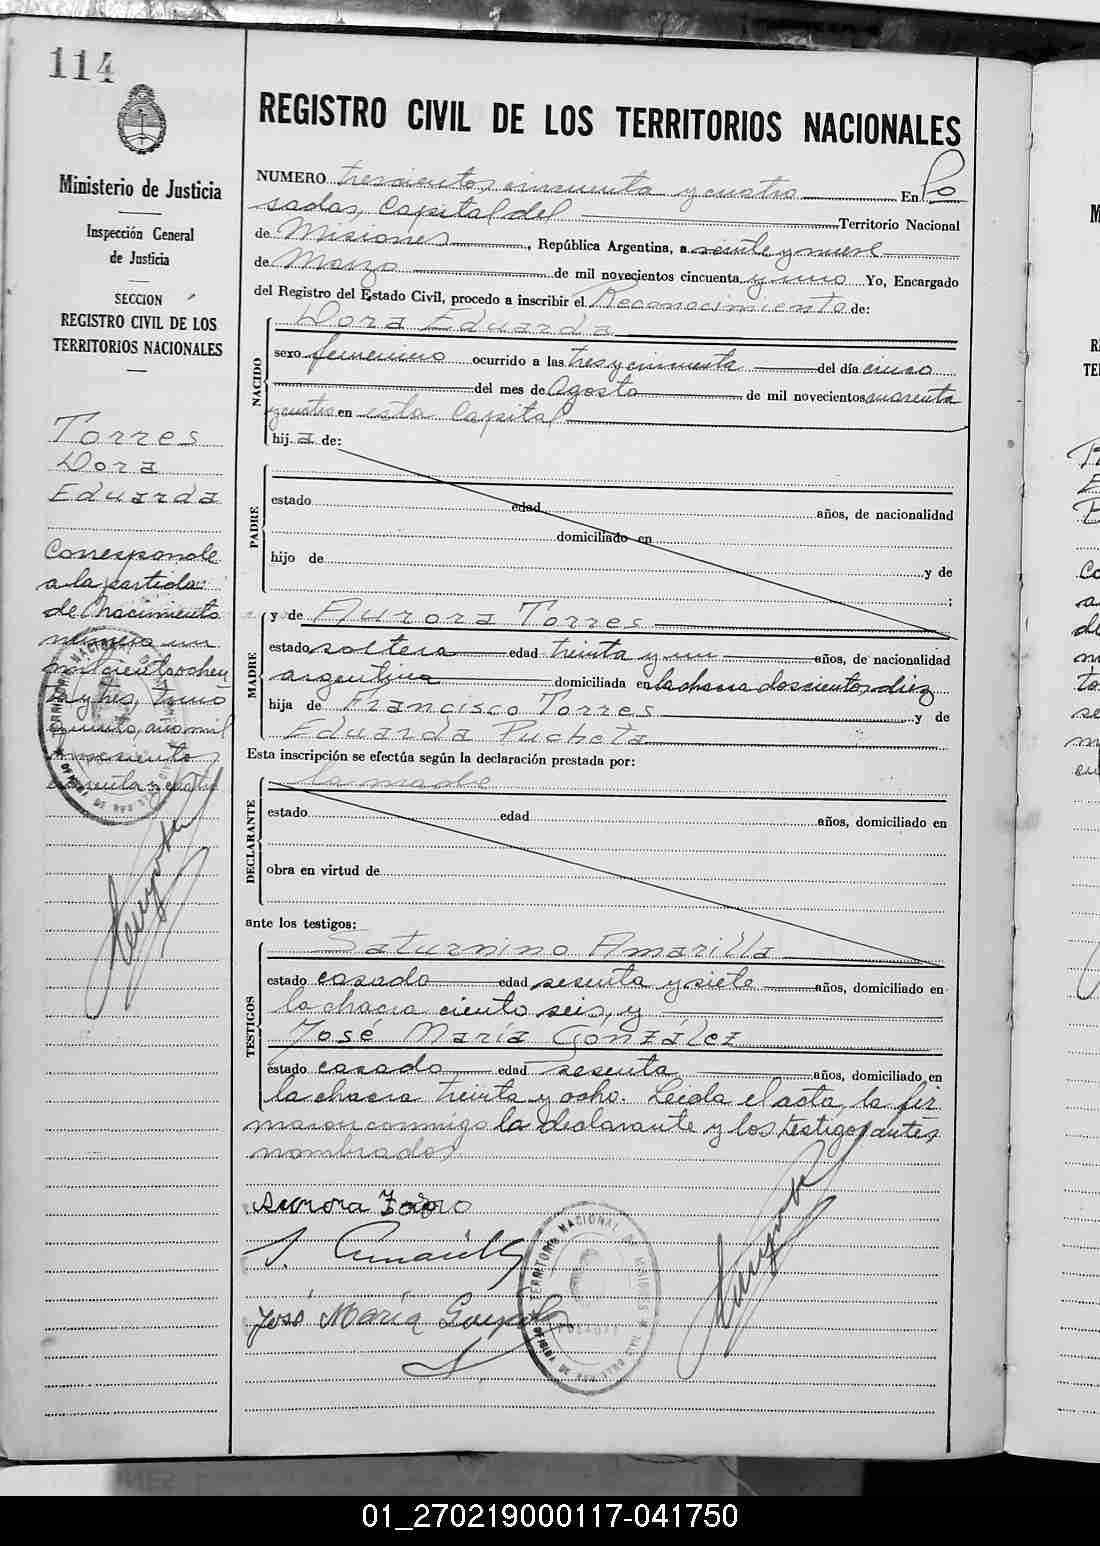 114
Ministerio de Justicia
Inspección General
de Justicia
SECCION
REGISTRO CIVIL DE LOS
TERRITORIOS NACIONALES
Torres
Dora
Eduarda
Corresponde
a la partida
de Nacimiento
número un
mil ciento ochen
ta y tres, tomo
quinto, año mil
novecientos
cuarenta y cuatro
REGISTRO CIVIL DE LOS TERRITORIOS NACIONALES
NUMERO trescientos cincuenta y cuatro En Po
sadas, Capital del Territorio Nacional
de Misiones, República Argentina, a veinte y nueve
de Marzo de mil novecientos cincuenta y uno Yo, Encargado
del Registro del Estado Civil, procedo a inscribir el Reconocimiento de:
NACIDO
Dora Eduarda
sexo femenino ocurrido a las tres y cincuenta del día cinco
del mes de Agosto de mil novecientos cuarenta
y cuatro en esta Capital
hij a de:
PADRE
estado edad años, de nacionalidad
domiciliado en
hijo de y de
;
MADRE
y de Aurora Torres
estado soltera edad treinta y un años, de nacionalidad
argentina domiciliada en la chacra doscientos diez
hija de Francisco Torres y de
Eduarda Pucheta
Esta inscripción se efectúa según la declaración prestada por:
DECLARANTE
la madre
estado edad años, domiciliado en
obra en virtud de
ante los testigos:
TESTIGOS
Saturnino Amarilla
estado casado edad sesenta y siete años, domiciliado en
la chacra ciento seis, y
José María González
estado casado edad sesenta años, domiciliado en
la chacra treinta y ocho. Leida el acta, la fir
maron conmigo la declarante y los testigos antes
nombrados
Aurora
S. Amarilla
José María
TERRITORIO NACIONAL DE MISIONES
OFICINA DE REGISTRO CIVIL
POSADAS
01_270219000117-041750